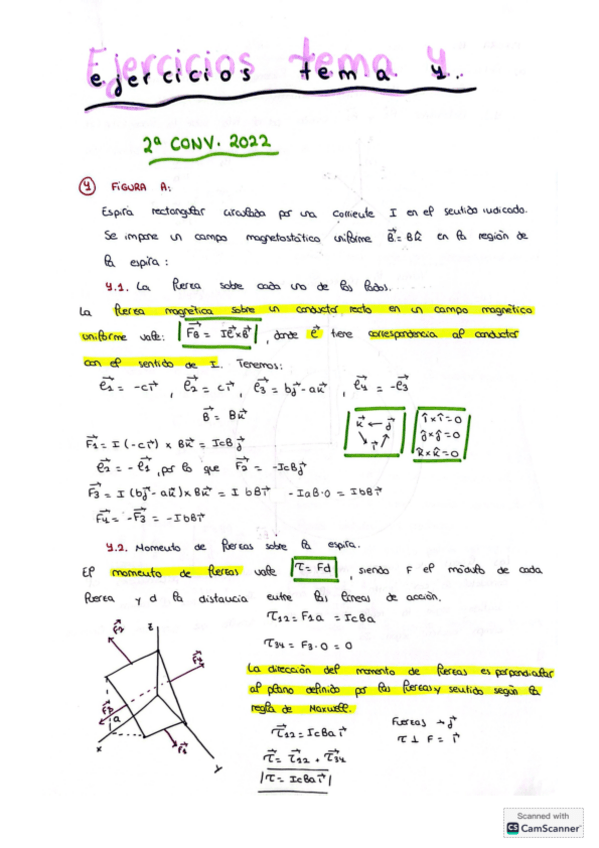 Ejercicios tema 4.
2ª CONV. 2022
④ FIGURA A:
Espira rectangular circulada por una corriente I en el sentido indicado.
Se impone un campo magnetostático uniforme B⃗ = Bk⃗ en la región de
la espira:
4.1. La fuerza sobre cada uno de los lados.
La fuerza magnética sobre un conductor recto en un campo magnético
uniforme vale: |F⃗B = Iℓ⃗xB⃗|, donde ℓ⃗ tiene correspondencia al conductor
con el sentido de I. Tenemos:
ℓ⃗1 = -ci⃗, ℓ⃗2 = ci⃗, ℓ⃗3 = bj⃗-ak⃗, ℓ⃗4 = -ℓ⃗3
B⃗ = Bk⃗
k⃗ ← j⃗
i⃗
î x î = 0
ĵ x ĵ = 0
k̂ x k̂ = 0
F⃗1 = I (-ci⃗) x Bk⃗ = IcBj⃗
ℓ⃗2 = -ℓ⃗1, por lo que F⃗2 = -IcBj⃗
F⃗3 = I (bj⃗-ak⃗) x Bk⃗ = I bBi⃗ - IaB·0 = IbBi⃗
F⃗4 = -F⃗3 = -IbBi⃗
4.2. Momento de fuerzas sobre la espira.
El momento de fuerzas vale |τ = Fd|, siendo F el módulo de cada
fuerza y d la distancia entre las líneas de acción.
τ12 = F1a = IcBa
τ34 = F3·0 = 0
La dirección del momento de fuerzas es perpendicular
al plano definido por las fuerzas y sentido según la
regla de Maxwell.
τ⃗12 = IcBai⃗
Fuerzas → j⃗
τ ⊥ F = i⃗
τ⃗ = τ⃗12 + τ⃗34
|τ⃗ = IcBai⃗|
F⃗2
z
F⃗4
F⃗3
a
x
F⃗1
y
Scanned with
CS CamScanner